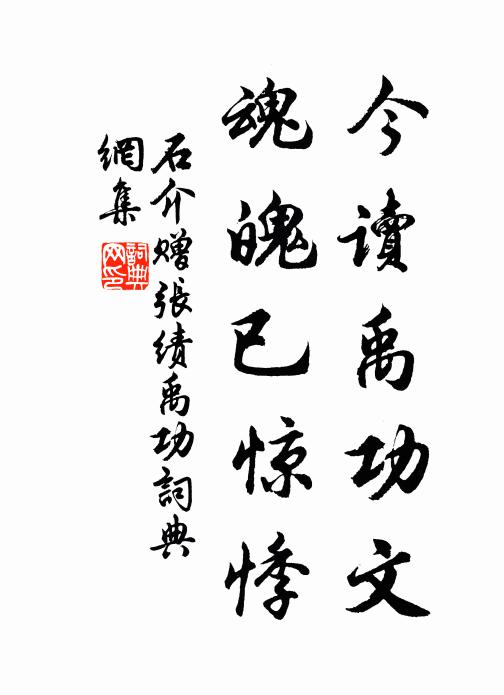 今读禹功文
魂魄已惊悸
石介赠張绩禹功詞典
網集
詞典
网印